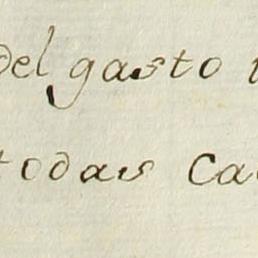 del gasto
todas ca